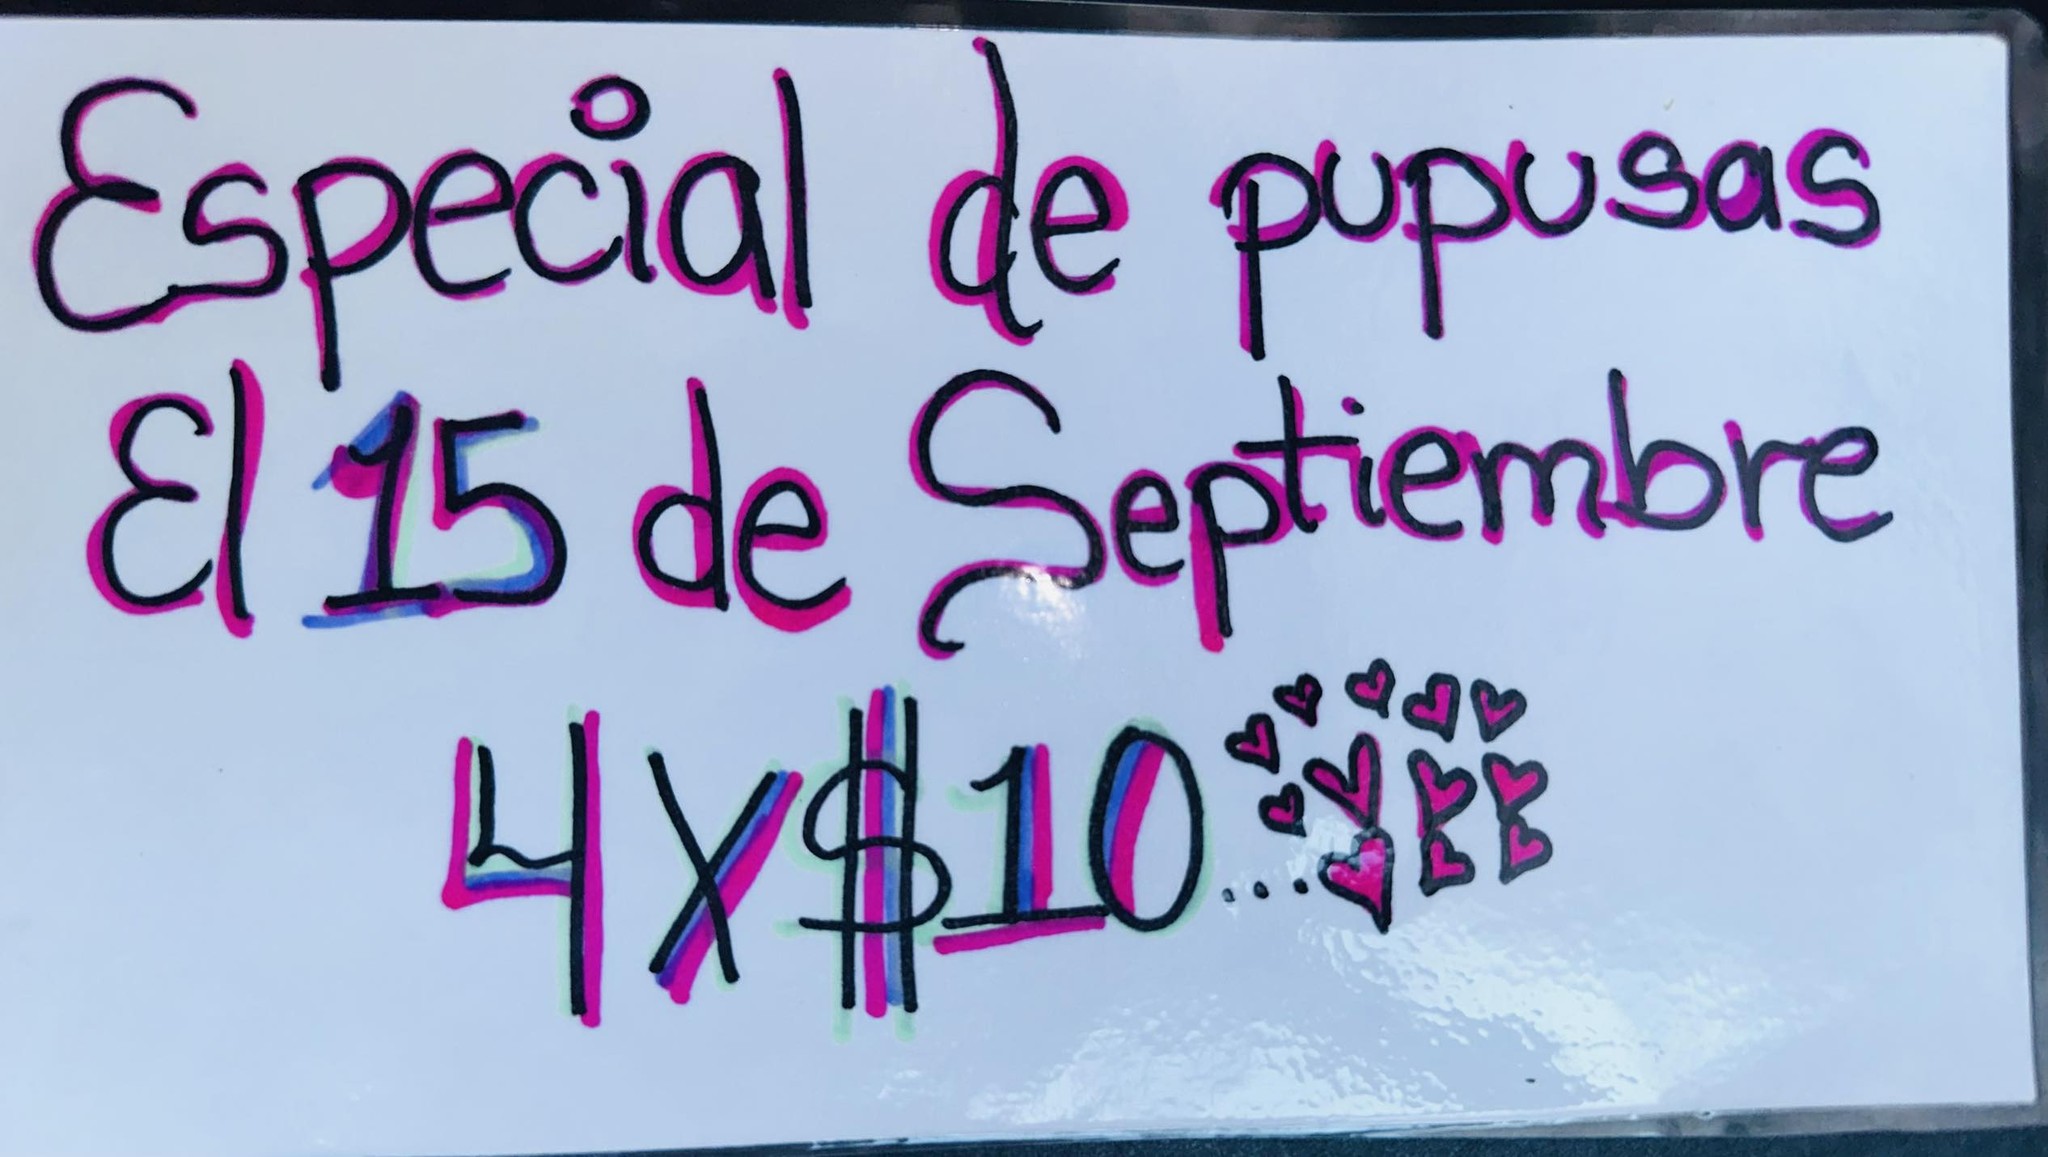 Especial de pupusas
El 15 de Septiembre
4 x $10...